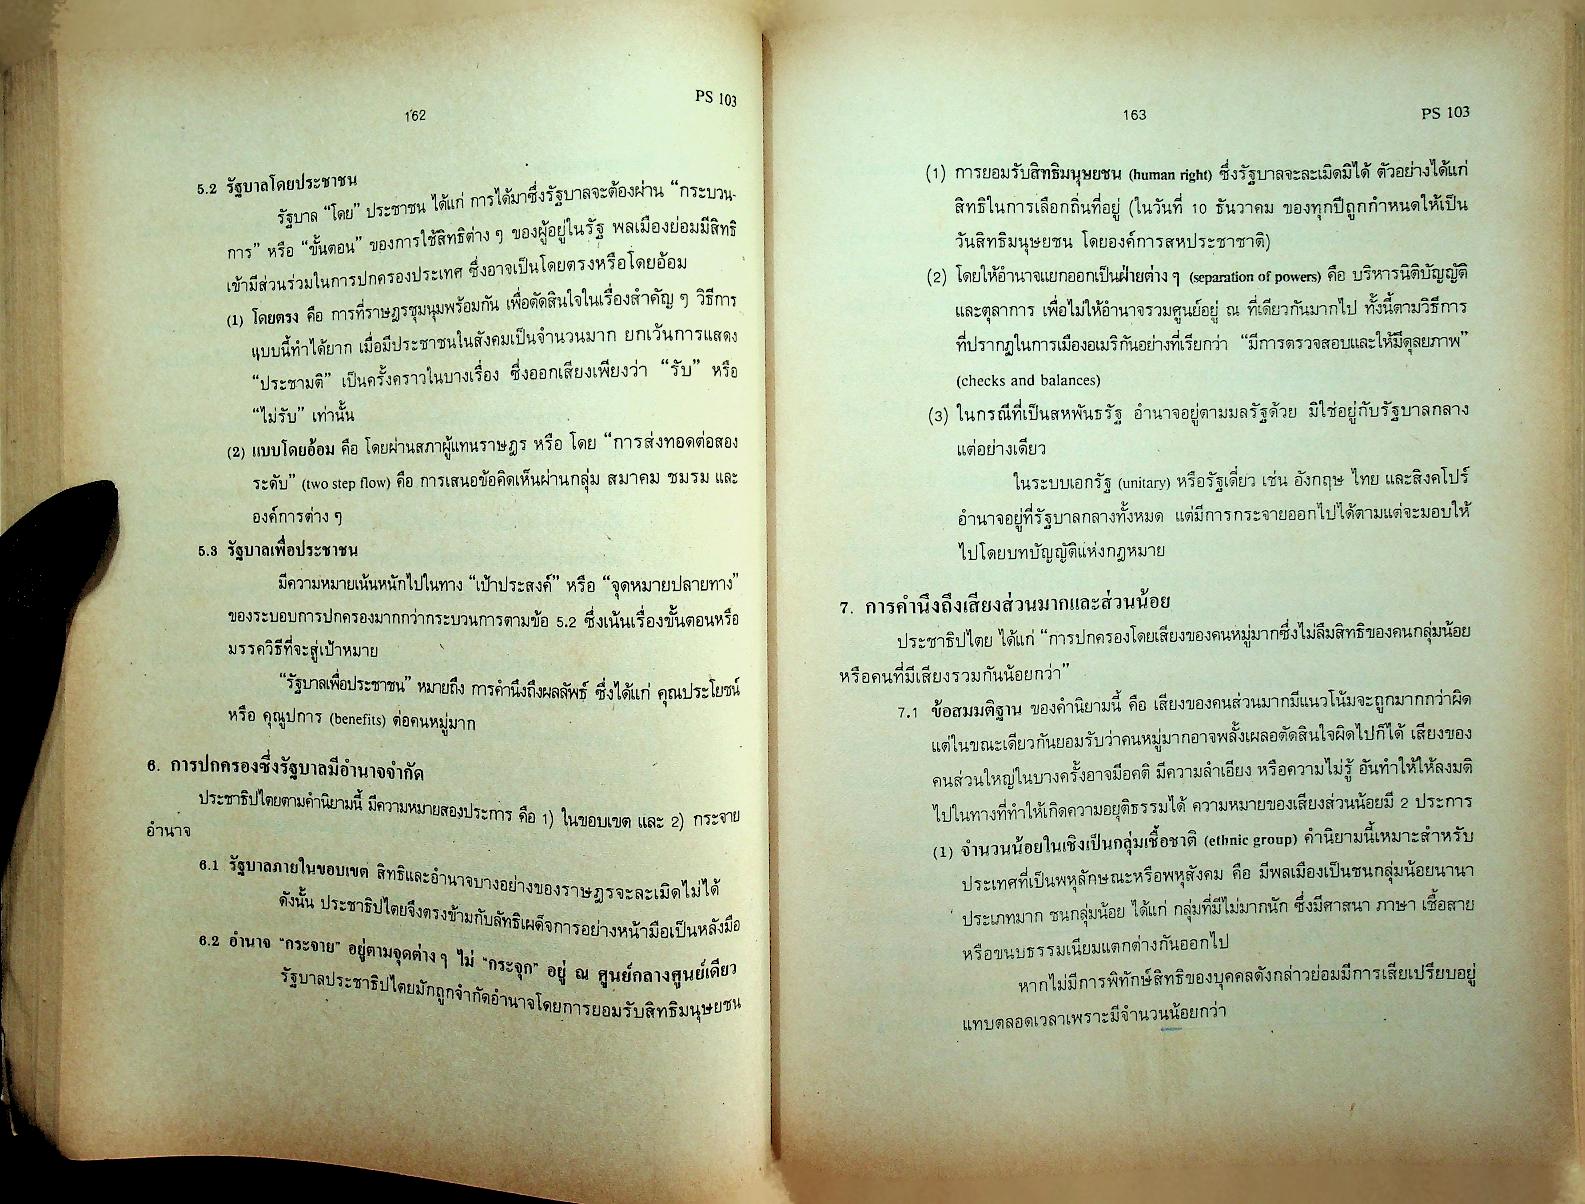 162
PS 103
5.2 รัฐบาลโดยประชาชน
รัฐบาล “โดย” ประชาชน ได้แก่ การได้มาซึ่งรัฐบาลจะต้องผ่าน “กระบวน-
การ” หรือ “ขั้นตอน” ของการใช้สิทธิต่าง ๆ ของผู้อยู่ในรัฐ พลเมืองย่อมมีสิทธิ
เข้ามีส่วนร่วมในการปกครองประเทศ ซึ่งอาจเป็นโดยตรงหรือโดยอ้อม
(1) โดยตรง คือ การที่ราษฎรชุมนุมพร้อมกัน เพื่อตัดสินใจในเรื่องสำคัญ ๆ วิธีการ
แบบนี้ทำได้ยาก เมื่อมีประชาชนในสังคมเป็นจำนวนมาก ยกเว้นการแสดง
“ประชามติ” เป็นครั้งคราวในบางเรื่อง ซึ่งออกเสียงเพียงว่า “รับ” หรือ
“ไม่รับ” เท่านั้น
(2) แบบโดยอ้อม คือ โดยผ่านสภาผู้แทนราษฎร หรือ โดย “การส่งทอดต่อสอง
ระดับ” (two step flow) คือ การเสนอข้อคิดเห็นผ่านกลุ่ม สมาคม ชมรม และ
องค์การต่าง ๆ
5.3 รัฐบาลเพื่อประชาชน
มีความหมายเน้นหนักไปในทาง “เป้าประสงค์” หรือ “จุดหมายปลายทาง”
ของระบอบการปกครองมากกว่ากระบวนการตามข้อ 5.2 ซึ่งเน้นเรื่องขั้นตอนหรือ
มรรควิธีที่จะสู่เป้าหมาย
“รัฐบาลเพื่อประชาชน” หมายถึง การคำนึงถึงผลลัพธ์ ซึ่งได้แก่ คุณประโยชน์
หรือ คุณูปการ (benefits) ต่อคนหมู่มาก
6. การปกครองซึ่งรัฐบาลมีอำนาจจำกัด
ประชาธิปไตยตามคำนิยามนี้ มีความหมายสองประการ คือ 1) ในขอบเขต และ 2) กระจาย
อำนาจ
6.1 รัฐบาลภายในขอบเขต สิทธิและอำนาจบางอย่างของราษฎรจะละเมิดไม่ได้
ดังนั้น ประชาธิปไตยจึงตรงข้ามกับลัทธิเผด็จการอย่างหน้ามือเป็นหลังมือ
6.2 อำนาจ “กระจาย” อยู่ตามจุดต่าง ๆ ไม่ “กระจุก” อยู่ ณ ศูนย์กลางศูนย์เดียว
รัฐบาลประชาธิปไตยมักถูกจำกัดอำนาจโดยการยอมรับสิทธิมนุษยชน
163
PS 103
(1) การยอมรับสิทธิมนุษยชน (human right) ซึ่งรัฐบาลจะละเมิดมิได้ ตัวอย่างได้แก่
สิทธิในการเลือกถิ่นที่อยู่ (ในวันที่ 10 ธันวาคม ของทุกปีถูกกำหนดให้เป็น
วันสิทธิมนุษยชน โดยองค์การสหประชาชาติ)
(2) โดยให้อำนาจแยกออกเป็นฝ่ายต่าง ๆ (separation of powers) คือ บริหารนิติบัญญัติ
และตุลาการ เพื่อไม่ให้อำนาจรวมศูนย์อยู่ ณ ที่เดียวกันมากไป ทั้งนี้ตามวิธีการ
ที่ปรากฏในการเมืองอเมริกันอย่างที่เรียกว่า “มีการตรวจสอบและให้มีดุลยภาพ”
(checks and balances)
(3) ในกรณีที่เป็นสหพันธรัฐ อำนาจอยู่ตามมลรัฐด้วย มิใช่อยู่กับรัฐบาลกลาง
แต่อย่างเดียว
ในระบบเอกรัฐ (unitary) หรือรัฐเดี่ยว เช่น อังกฤษ ไทย และสิงคโปร์
อำนาจอยู่ที่รัฐบาลกลางทั้งหมด แต่มีการกระจายออกไปได้ตามแต่จะมอบให้
ไปโดยบทบัญญัติแห่งกฎหมาย
7. การคำนึงถึงเสียงส่วนมากและส่วนน้อย
ประชาธิปไตย ได้แก่ “การปกครองโดยเสียงของคนหมู่มากซึ่งไม่ลืมสิทธิของคนกลุ่มน้อย
หรือคนที่มีเสียงรวมกันน้อยกว่า”
7.1 ข้อสมมติฐาน ของคำนิยามนี้ คือ เสียงของคนส่วนมากมีแนวโน้มจะถูกมากกว่าผิด
แต่ในขณะเดียวกันยอมรับว่าคนหมู่มากอาจพลั้งเผลอตัดสินใจผิดไปก็ได้ เสียงของ
คนส่วนใหญ่ในบางครั้งอาจมีอคติ มีความลำเอียง หรือความไม่รู้ อันทำให้ให้ลงมติ
ไปในทางที่ทำให้เกิดความอยุติธรรมได้ ความหมายของเสียงส่วนน้อยมี 2 ประการ
(1) จำนวนน้อยในเชิงเป็นกลุ่มเชื้อชาติ (ethnic group) คำนิยามนี้เหมาะสำหรับ
ประเทศที่เป็นพหุลักษณะหรือพหุสังคม คือ มีพลเมืองเป็นชนกลุ่มน้อยนานา
ประเภทมาก ชนกลุ่มน้อย ได้แก่ กลุ่มที่มีไม่มากนัก ซึ่งมีศาสนา ภาษา เชื้อสาย
หรือขนบธรรมเนียมแตกต่างกันออกไป
หากไม่มีการพิทักษ์สิทธิของบุคคลดังกล่าวย่อมมีการเสียเปรียบอยู่
แทบตลอดเวลาเพราะมีจำนวนน้อยกว่า